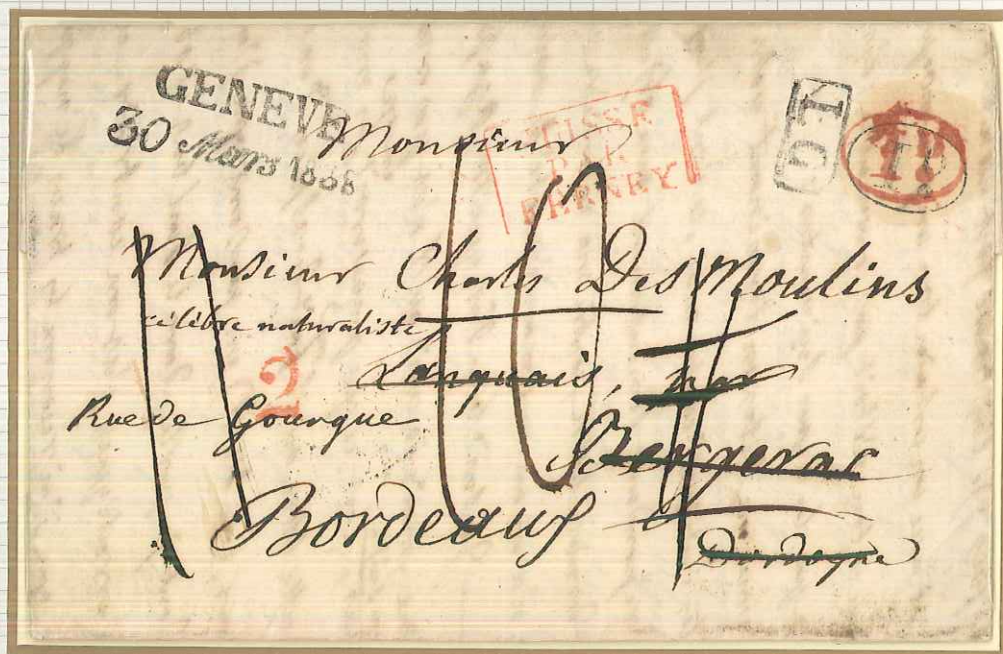 GENEVE
30 Mars 1838
SUISSE
PAR
FERNEY
LG
Monsieur
Monsieur Charles Des Moulins
célèbre naturaliste
Lanquais, par
2
Rue de Gourgue
Bergerac
Bordeaux
Dordogne